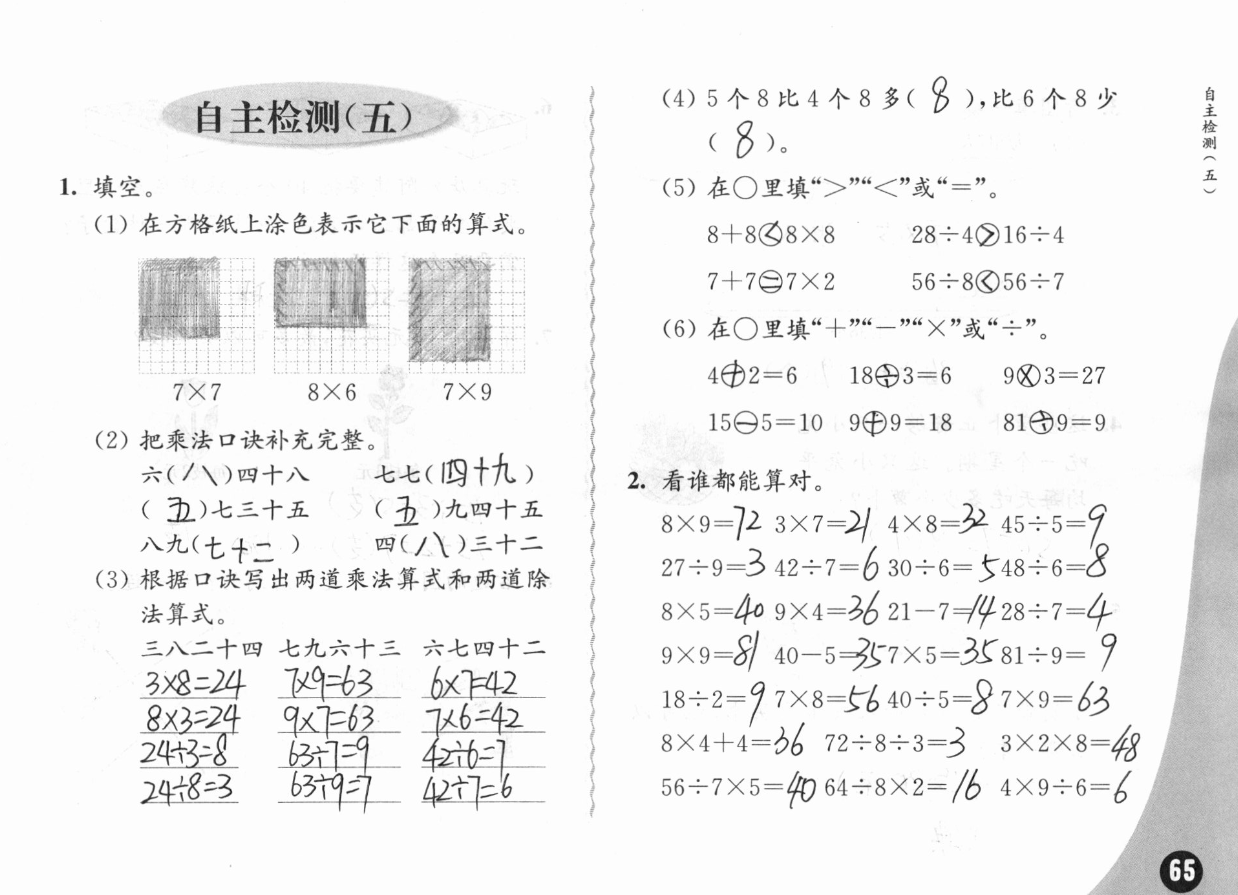 自主检测(五)
1. 填空。
(1) 在方格纸上涂色表示它下面的算式。
7×7 8×6 7×9
(2) 把乘法口诀补充完整。
六(八)四十八 七七(四十九)
(五)七三十五 (五)九四十五
八九(七十二) 四(八)三十二
(3) 根据口诀写出两道乘法算式和两道除
法算式。
三八二十四 七九六十三 六七四十二
3×8=24 7×9=63 6×7=42
8×3=24 9×7=63 7×6=42
24÷3=8 63÷7=9 42÷6=7
24÷8=3 63÷9=7 42÷7=6
(4) 5个8比4个8多(8),比6个8少
(8)。
(5) 在○里填“>”“<”或“=”。
8+8<8×8 28÷4>16÷4
7+7=7×2 56÷8<56÷7
(6) 在○里填“+”“-”“×”或“÷”。
4+2=6 18÷3=6 9×3=27
15-5=10 9+9=18 81÷9=9
2. 看谁都能算对。
8×9=72 3×7=21 4×8=32 45÷5=9
27÷9=3 42÷7=6 30÷6=5 48÷6=8
8×5=40 9×4=36 21-7=14 28÷7=4
9×9=81 40-5=35 7×5=35 81÷9=9
18÷2=9 7×8=56 40÷5=8 7×9=63
8×4+4=36 72÷8÷3=3 3×2×8=48
56÷7×5=40 64÷8×2=16 4×9÷6=6
自主检测(五)
65